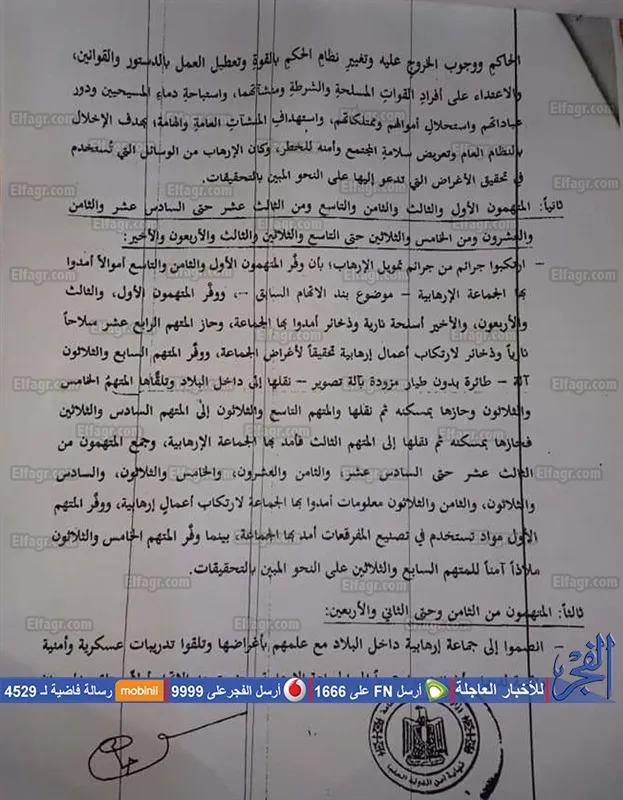 الحاكم ووجوب الخروج عليه وتغيير نظام الحكم بالقوة وتعطيل العمل بالدستور والقوانين،
والاعتداء على أفراد القوات المسلحة والشرطة ومنشآتهما، واستباحة دماء المسيحيين ودور
عباداتهم واستحلال أموالهم وممتلكاتهم، واستهداف المنشآت العامة والهامة؛ بهدف الإخلال
بالنظام العام وتعريض سلامة المجتمع وأمنه للخطر، وكان الإرهاب من الوسائل التي تُستخدم
في تحقيق الأغراض التي تدعو إليها على النحو المبين بالتحقيقات.
ثانياً: المتهمون الأول والثالث والثامن والتاسع ومن الثالث عشر حتى السادس عشر والثامن
والعشرون ومن الخامس والثلاثين حتى التاسع والثلاثين والثالث والأربعون والأخير:
- ارتكبوا جرائم من جرائم تمويل الإرهاب؛ بأن وفَّر المتهمون الأول والثامن والتاسع أموالاً أمدوا
بها الجماعة الإرهابية - موضوع بند الاتهام السابق -، ووفَّر المتهمون الأول، والثالث
والأربعون، والأخير أسلحة نارية وذخائر أمدوا بها الجماعة، وحاز المتهم الرابع عشر سلاحاً
نارياً وذخائر لارتكاب أعمال إرهابية تحقيقاً لأغراض الجماعة، ووفر المتهم السابع والثلاثون
آلة - طائرة بدون طيار مزودة بآلة تصوير - نقلها إلى داخل البلاد وتلقَّاها المتهمُ الخامس
والثلاثون وحازها بمسكنه ثم نقلها والمتهم التاسع والثلاثون إلى المتهم السادس والثلاثين
فحازها بمسكنه ثم نقلها إلى المتهم الثالث فأمد بها الجماعة الإرهابية، وجمع المتهمون من
الثالث عشر حتى السادس عشر، والثامن والعشرون، والخامس والثلاثون، والسادس
والثلاثون، والثامن والثلاثون معلومات أمدوا بها الجماعة لارتكاب أعمال إرهابية، ووفَّر المتهم
الأول مواد تستخدم في تصنيع المفرقعات أمد بها الجماعة، بينما وفَّر المتهم الخامس والثلاثون
ملاذاً آمناً للمتهم السابع والثلاثين على النحو المبين بالتحقيقات.
ثالثاً: المتهمون من الثامن وحتى الثاني والأربعين:
- انضموا إلى جماعة إرهابية داخل البلاد مع علمهم بأغراضها وتلقوا تدريبات عسكرية وأمنية
الفجر للأخبار العاجلة أرسل FN على 1666 أرسل الفجر على 9999 mobinil رسالة فاضية لـ 4529
١٠
نيابة أمن الدولة العليا
Elfagr.com